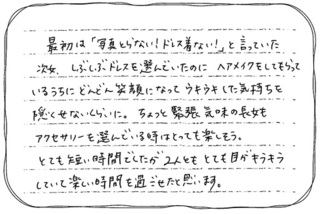 最初は「写真とらない！ドレス着ない！」と言っていた
次女、しぶしぶドレスを選んでいたのに ヘアメイクをしてもらって
いるうちにどんどん笑顔になって ウキウキした気持ちを
隠しきれないくらいに。ちょっと緊張気味の長女も
アクセサリーを選んでいる時はとっても楽しそう。
とても短い時間でしたが 2人とも とても目がキラキラ
していて 楽しい時間を過ごせたと思います。